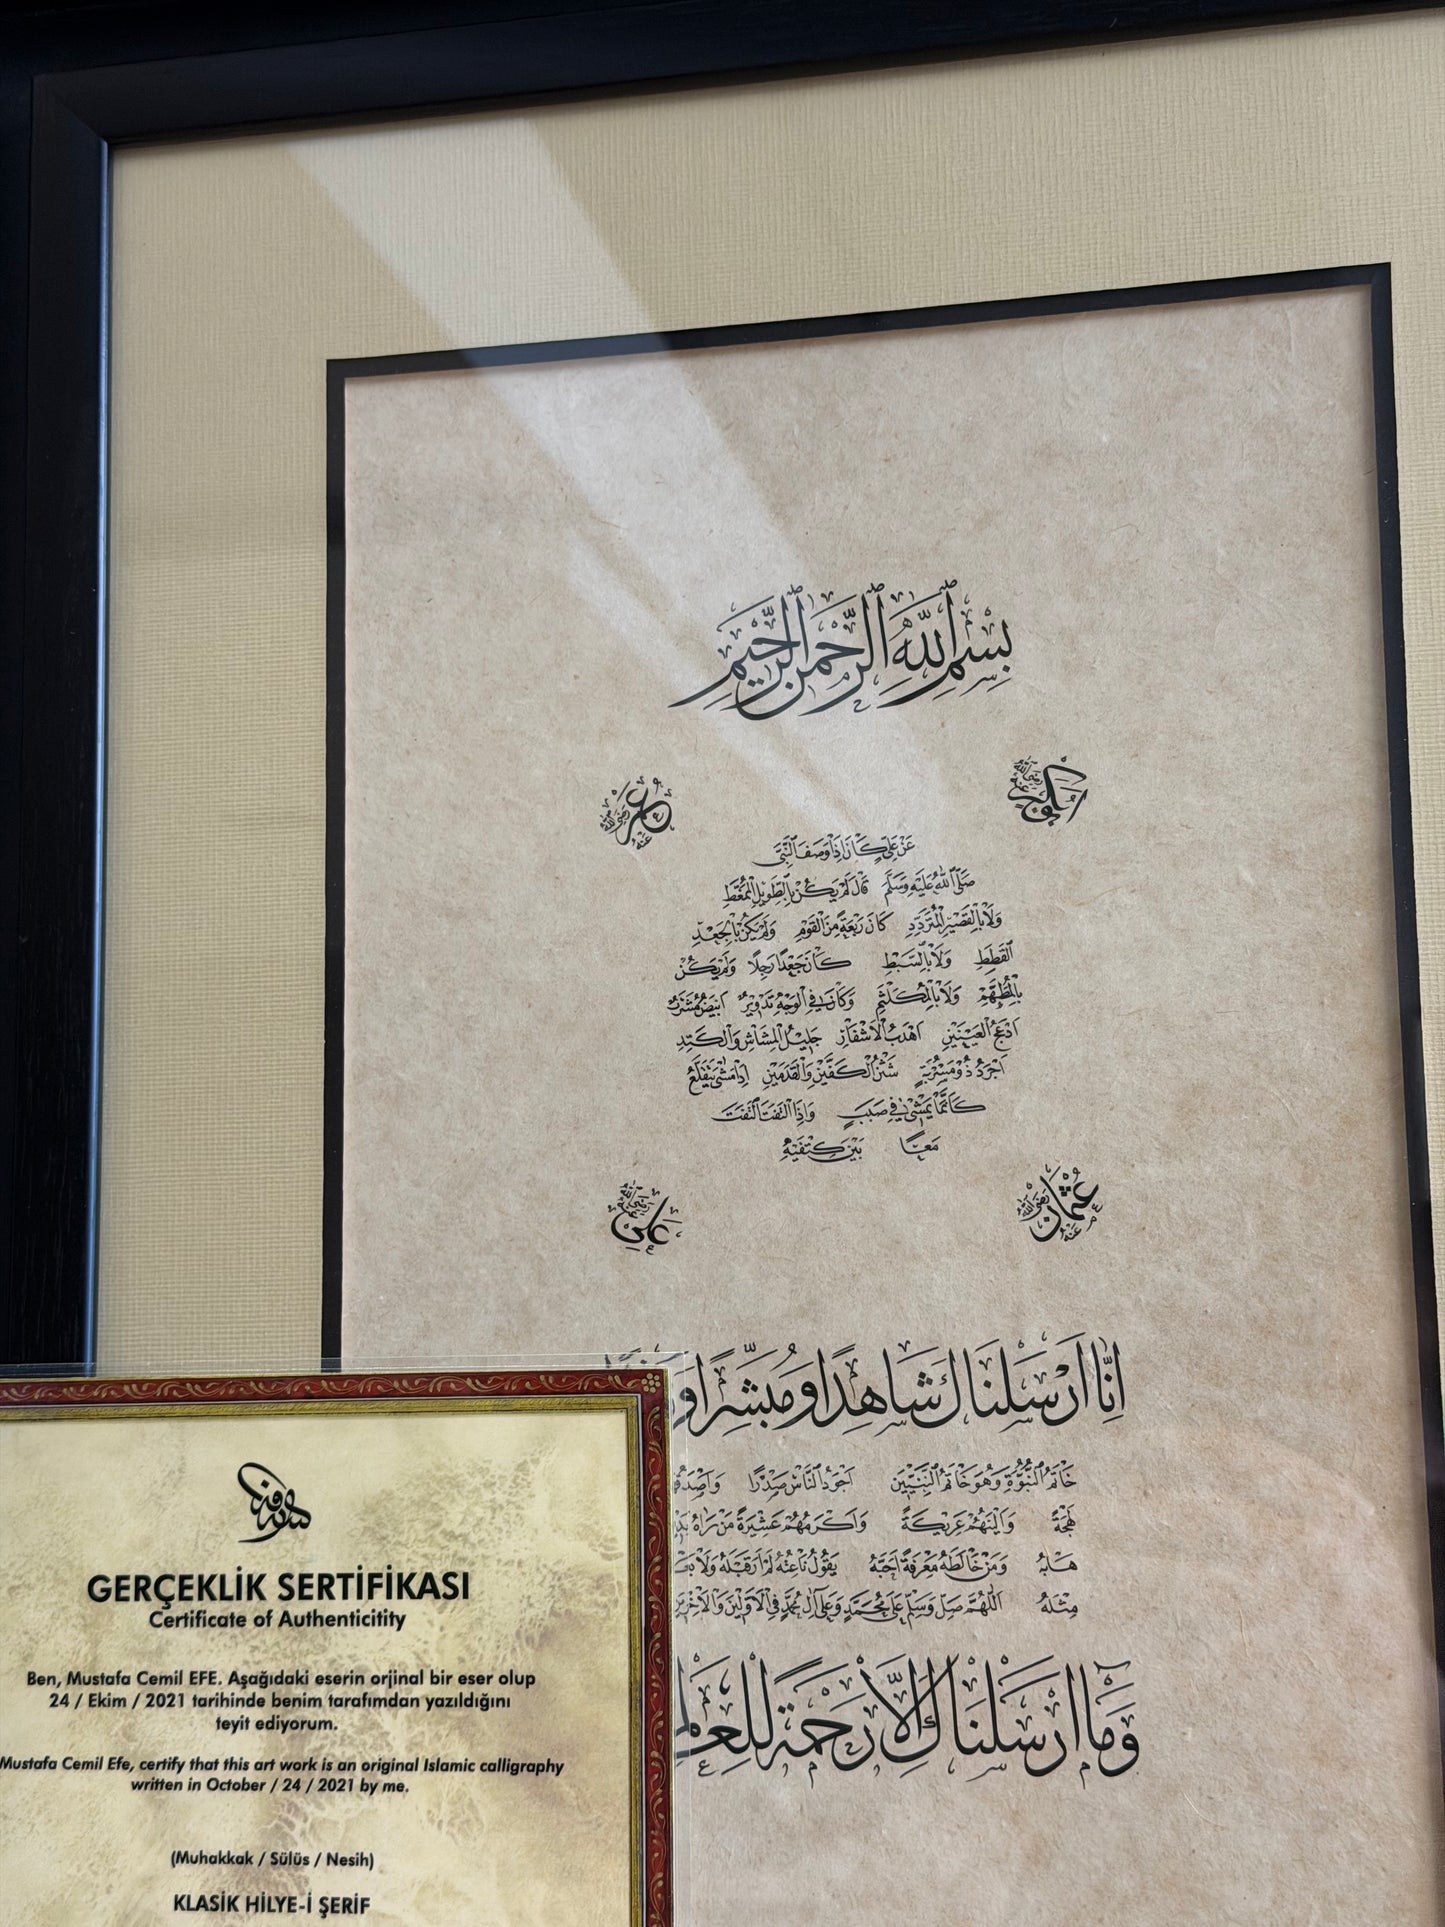 بِسْمِ اللّٰهِ الرَّحْمٰنِ الرَّحِيمِ
اَبُو بَكْرٍ رَضِيَ اللّٰهُ عَنْهُ
عُمَرُ رَضِيَ اللّٰهُ عَنْهُ
عَنْ عَلِيٍّ كَانَ اِذَا وَصَفَ النَّبِيَّ
صَلَّى اللّٰهُ عَلَيْهِ وَسَلَّمَ قَالَ لَمْ يَكُنْ بِالطَّوِيلِ الْمُمَّغَطِ
وَلَا بِالْقَصِيرِ الْمُتَرَدِّدِ كَانَ رَبْعَةً مِنَ الْقَوْمِ وَلَمْ يَكُنْ بِالْجَعْدِ
الْقَطَطِ وَلَا بِالسَّبْطِ كَانَ جَعْدًا رَجِلًا وَلَمْ يَكُنْ
بِالْمُطَهَّمِ وَلَا بِالْمُكَلْثَمِ وَكَانَ فِي الْوَجْهِ تَدْوِيرٌ اَبْيَضُ مُشْرَبٌ
اَدْعَجُ الْعَيْنَيْنِ اَهْدَبُ الْاَشْفَارِ جَلِيلُ الْمُشَاشِ وَالْكَتَدِ
اَجْرَدُ ذُو مَسْرُبَةٍ شَثْنُ الْكَفَّيْنِ وَالْقَدَمَيْنِ اِذَا مَشٰى يَتَقَلَّعُ
كَاَنَّمَا يَمْشِي فِي صَبَبٍ وَاِذَا الْتَفَتَ الْتَفَتَ
مَعًا بَيْنَ كَتِفَيْهِ
عُثْمَانُ رَضِيَ اللّٰهُ عَنْهُ
عَلِيٌّ رَضِيَ اللّٰهُ عَنْهُ
اِنَّا اَرْسَلْنَاكَ شَاهِدًا وَمُبَشِّرًا
خَاتَمُ النُّبُوَّةِ وَهُوَ خَاتَمُ النَّبِيِّينَ اَجْوَدُ النَّاسِ صَدْرًا
لَهْجَةً وَاَلْيَنُهُمْ عَرِيكَةً وَاَكْرَمُهُمْ عَشِيرَةً مَنْ رَاٰهُ
هَابَهُ وَمَنْ خَالَطَهُ مَعْرِفَةً اَحَبَّهُ يَقُولُ نَاعِتُهُ لَمْ اَرَ قَبْلَهُ وَلَا
مِثْلَهُ اَللّٰهُمَّ صَلِّ وَسَلِّمْ عَلٰى مُحَمَّدٍ وَعَلٰى اٰلِ مُحَمَّدٍ فِي الْاَوَّلِينَ وَالْاٰخِرِينَ
وَمَا اَرْسَلْنَاكَ اِلَّا رَحْمَةً
GERÇEKLİK SERTİFİKASI
Certificate of Authenticitity
Ben, Mustafa Cemil EFE. Aşağıdaki eserin orjinal bir eser olup
24 / Ekim / 2021 tarihinde benim tarafımdan yazıldığını
teyit ediyorum.
Mustafa Cemil Efe, certify that this art work is an original Islamic calligraphy
written in October / 24 / 2021 by me.
(Muhakkak / Sülüs / Nesih)
KLASİK HİLYE-İ ŞERİF